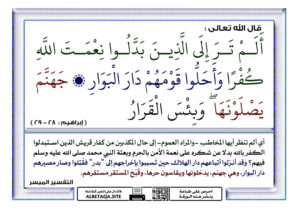 قال الله تعالى :
أَلَمْ تَرَ إِلَى الَّذِينَ بَدَّلُوا نِعْمَتَ اللَّهِ
كُفْرًا وَأَحَلُّوا قَوْمَهُمْ دَارَ الْبَوَارِ ۝ جَهَنَّمَ
يَصْلَوْنَهَا ۖ وَبِئْسَ الْقَرَارُ
[إبراهيم : ٢٨ - ٢٩]
أي ألم تنظر أيها المخاطب -والمراد العموم- إلى حال المكذبين من كفار قريش الذين استبدلوا
الكفر بالله بدلًا عن شكره على نعمة الأمن بالحرم وبعثة النبي محمد صلى الله عليه وسلم
فيهم؟ وقد أنزلوا أتباعهم دار الهلاك حين تسببوا بإخراجهم إلى "بدر" فقتلوا وصار مصيرهم
دار البوار، وهي جهنم، يدخلونها ويقاسون حرها، وقبح المستقر مستقرهم.
التفسير الميسر
احرص على طباعة
ونشر هذه الورقة
ALBETAQA.SITE